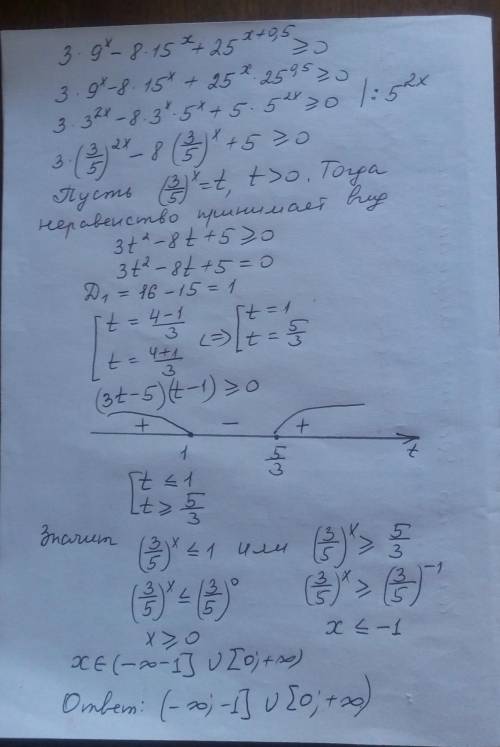 3·9^x − 8·15^x + 25^{x+0,5} ≥ 0
3·9^x − 8·15^x + 25^x · 25^{0,5} ≥ 0
3·3^{2x} − 8·3^x·5^x + 5·5^{2x} ≥ 0 |:5^{2x}
3·(3/5)^{2x} − 8(3/5)^x + 5 ≥ 0
Пусть (3/5)^x = t, t>0. Тогда
неравенство принимает вид
3t² − 8t + 5 ≥ 0
3t² − 8t + 5 = 0
D₁ = 16 − 15 = 1
[t = (4−1)/3 [t = 1
<=>
[t = (4+1)/3 [t = 5/3
(3t−5)(t−1) ≥ 0
+ − +
1 5/3 t
[t ≤ 1
[t ≥ 5/3
Значит (3/5)^x ≤ 1 или (3/5)^x ≥ 5/3
(3/5)^x ≤ (3/5)^0 (3/5)^x ≥ (3/5)^{−1}
x ≥ 0 x ≤ −1
x ∈ (−∞ −1] ∪ [0; +∞)
Ответ: (−∞; −1] ∪ [0; +∞)